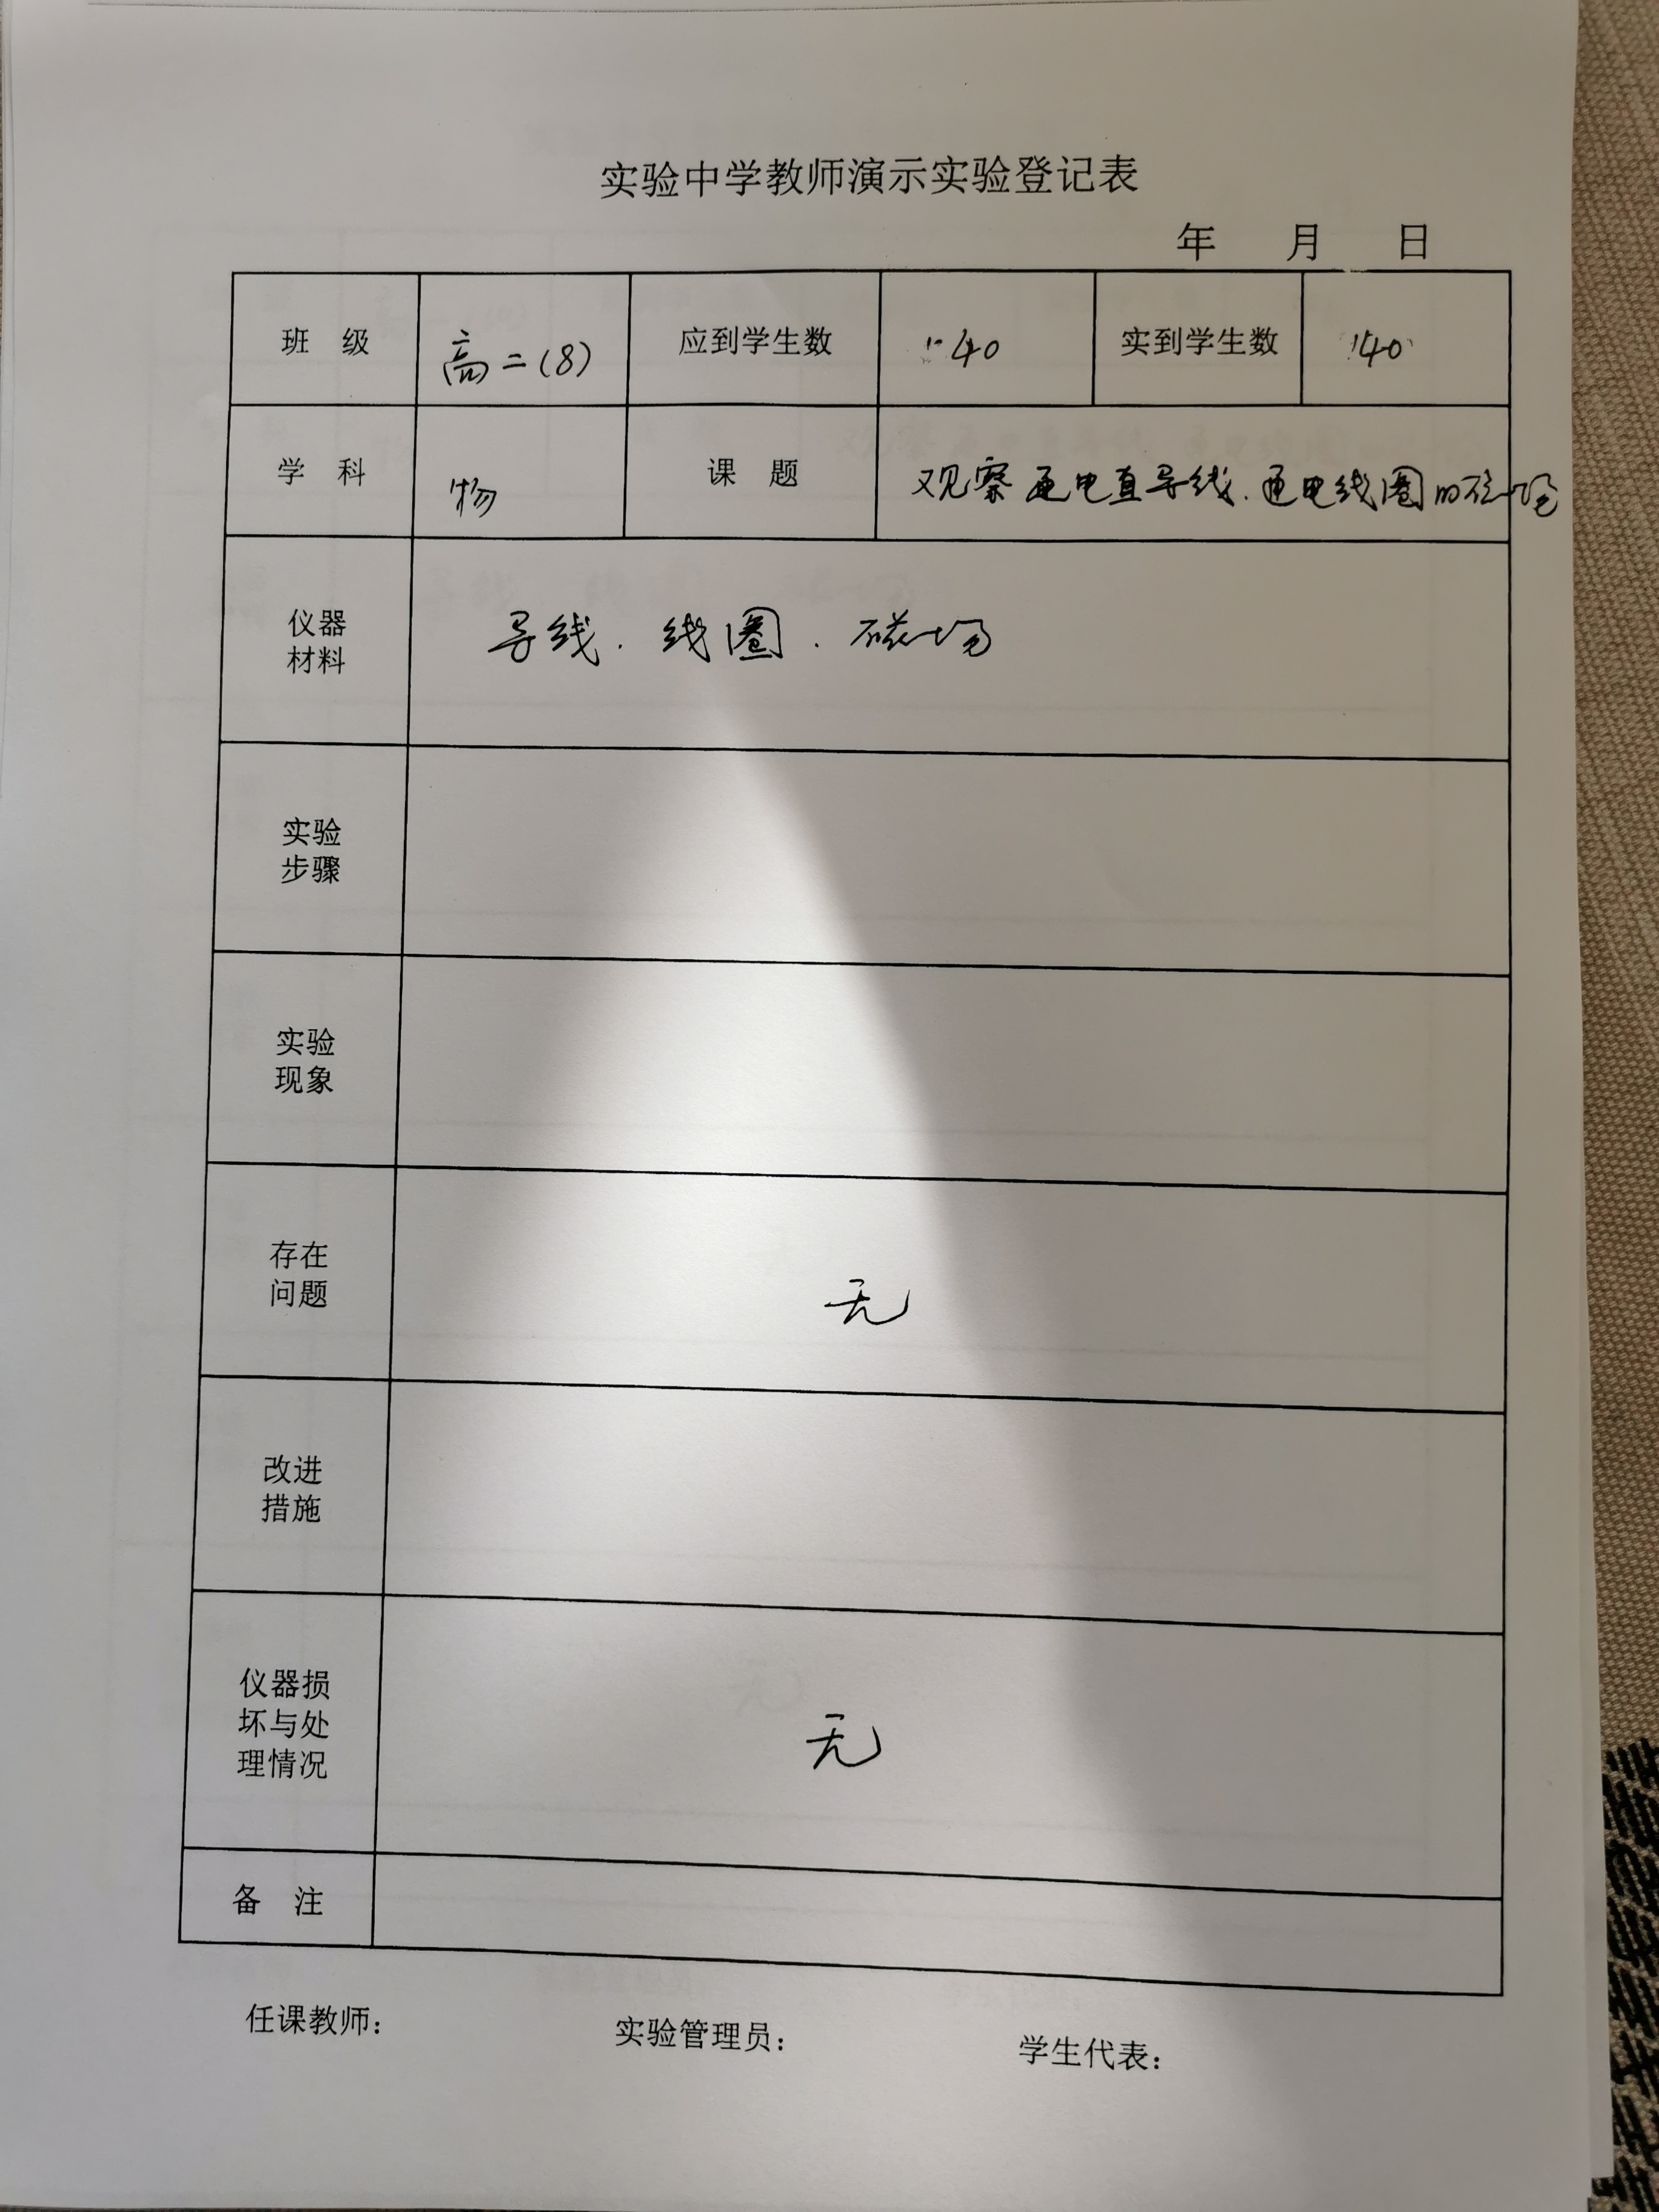 实验中学教师演示实验登记表
年 月 日
班 级 高二(8) 应到学生数 40 实到学生数 40
学 科 物 课 题 观察通电直导线.通电线圈的磁场
仪器
材料
导线. 线圈. 磁场
实验
步骤
实验
现象
存在
问题
无
改进
措施
仪器损
坏与处
理情况
无
备 注
任课教师: 实验管理员: 学生代表: